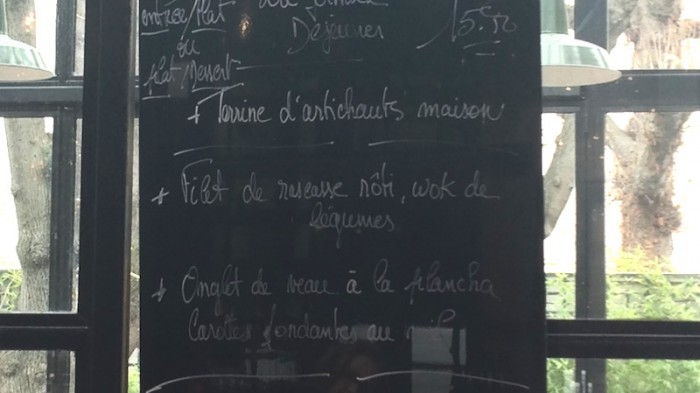 entrée/Plat
Déjeuner 15.50
ou
Plat/Dessert
+ Terrine d'artichauts maison
+ Filet de rascasse rôti, wok de
légumes
+ Onglet de veau à la plancha
Carottes fondantes au